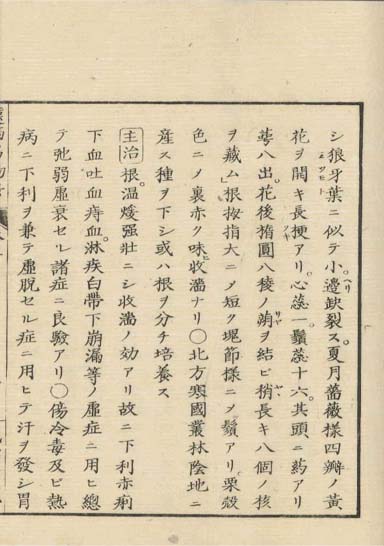 シ狼牙葉ニ似テ小。邉缺裂ス。夏月薔薇樣四瓣ノ黄
花ヲ開キ長梗アリ。心蕊一鬚蕊十六。其頭ニ葯アリ
萼八出。花後楕圓八稜ノ蒴ヲ結ビ稍長キ八個ノ核
ヲ藏ム」根按指大ニメ短ク塊節樣ニメ鬚アリ。栗殻
色ニノ裏赤ク味ヒ收濇ナリ〇北方寒國叢林陰地ニ
産ス種ヲ下シ或ハ根ヲ分チ培養ス
主治 根。温煖強壯ニシ收濇ノ効アリ故ニ下利赤痢
下血吐血痔血。淋疾白帶下崩漏等ノ虚症ニ用ヒ總
テ弛弱虚衰セル諸症ニ良驗アリ〇傷冷毒及ビ熱
病ニ下利ヲ兼テ虚脱セル症ニ用ヒテ汗ヲ發シ胃